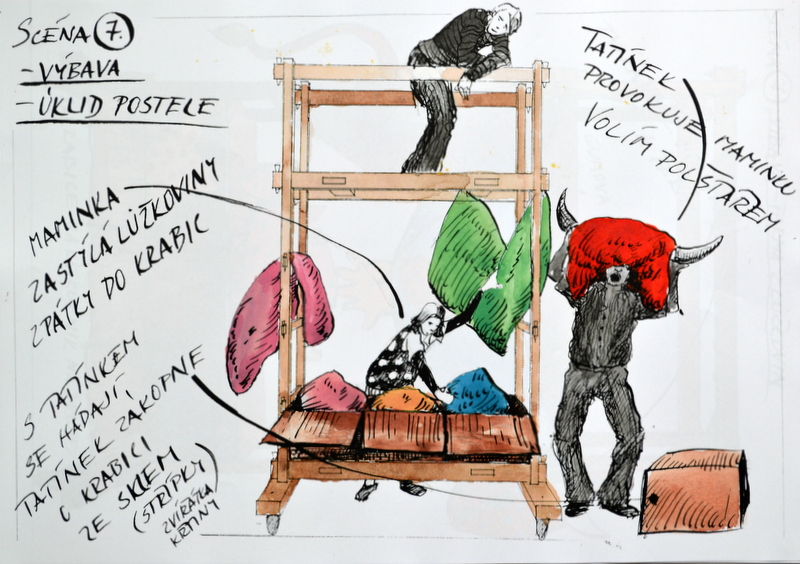 SCÉNA 7.
- VÝBAVA
- ÚKLID POSTELE
MAMINKA
ZASTÝLÁ LŮŽKOVINY
ZPÁTKY DO KRABIC
S TATÍNKEM
SE HÁDAJÍ,
TATÍNEK ZAKOPNE
O KRABICI
ZE SKLEM
(STŘÍPKY)
ZVÍŘÁTKA
TATÍNEK
PROVOKUJE MAMINKU
VOLÍM POLŠTÁŘEM